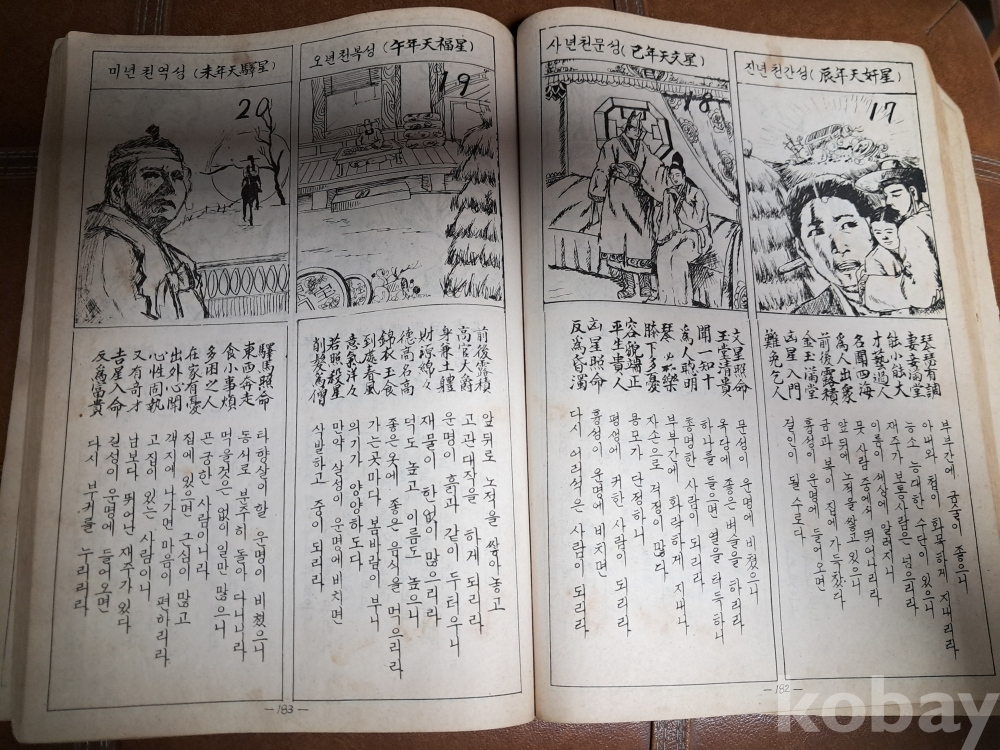 진년천간성(辰年天奸星)
17
琴瑟有調
妻妾滿堂
能小能大
才藝過人
名聞四海
為人出衆
前後露積
金玉滿堂
凶星入門
難免乞人
부부간에 금술이 좋으니
아내와 첩이 화목하게 지내리라
능소능대한 수단이 있으니
재주가 보통사람은 넘으리라
이름이 세상에 알려지니
뭇 사람 중에서 뛰어나리라
앞뒤에 노적을 쌓고 있으니
금과 복이 집에 가득찼다
흉성이 운명에 들어오면
걸인이 될 수로다
사년천문성(巳年天文星)
18
文星照命
玉堂清貴
聞一知十
為人聰明
琴必和樂
膝下多憂
容貌端正
平生貴人
凶星照命
反為昏濁
문성이 운명에 비쳤으니
옥당에 좋은 벼슬을 하리라
하나를 들으면 열을 터득하니
총명한 사람이 되리라
부부간에 화락하게 지내나
자손으로 걱정이 많다
용모가 단정하니
평생에 귀한 사람이 되리라
흉성이 운명에 비치면
다시 어리석은 사람이 되리라
— 182 —
오년천복성(午年天福星)
19
前後露積
高官大爵
身兼土
財諒綿々
德高名高
錦衣玉食
到處春風
意氣洋々
若照殺星
削髮為僧
앞뒤로 노적을 쌓아놓고
고관대작을 하게 되리라
운명이 흙과 같이 두터우니
재물이 한없이 많으리라
덕도 높고 이름도 높으니
좋은 옷에 좋은 음식을 먹으리라
가는곳마다 봄바람이 부니
의기가 양양하도다
만약 살성이 운명에 비치면
삭발하고 중이 되리라
미년천역성(未年天驛星)
20
驛馬照命
東西奔走
食小事煩
多困之人
在家有憂
出外心閑
心性固執
又有奇才
吉星入命
反為富貴
타향살이할 운명이 비쳤으니
동서로 분주히 돌아 다니니라
먹을것은 없이 일만 많으니
곤궁한 사람이니라
집에 있으면 근심이 많고
객지에 나가면 마음이 편하리라
고집이 있는 사람이니
남보다 뛰어난 재주가 있다
길성이 운명에 들어오면
다시 부귀를 누리리라
— 183 —
kobay